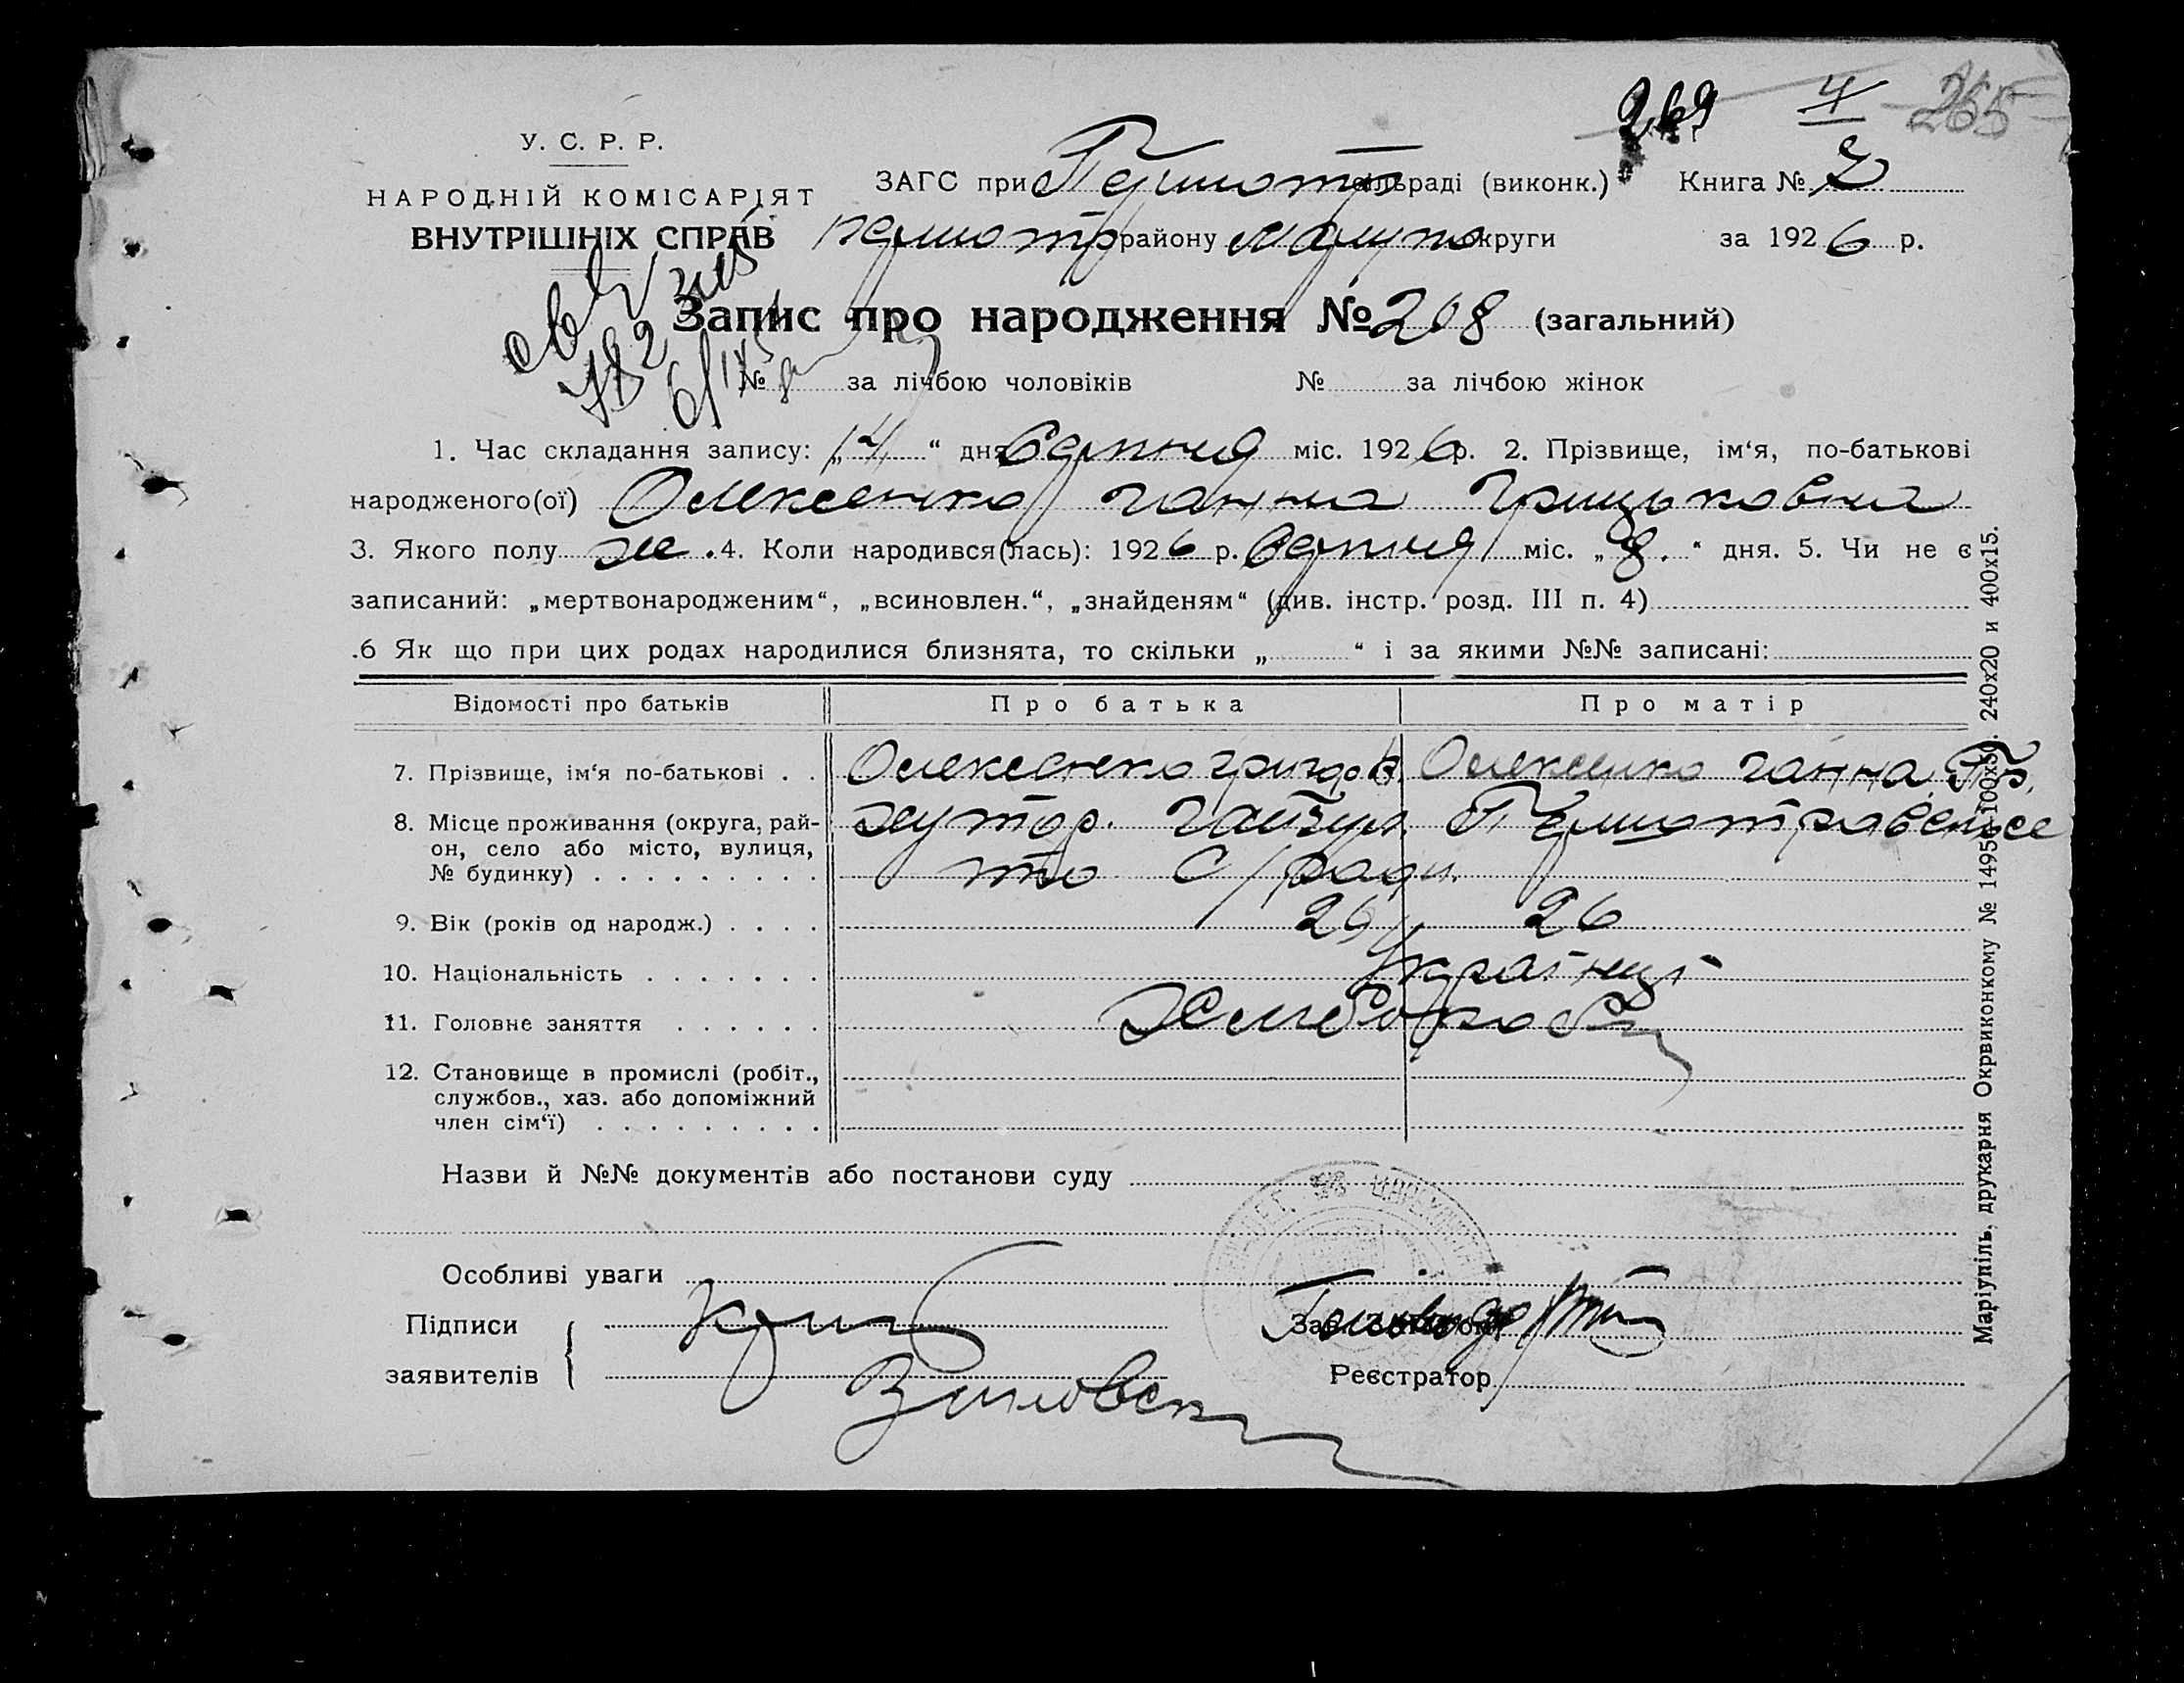 269 4 265
У. С. Р. Р.
НАРОДНІЙ КОМІСАРІЯТ
ВНУТРІШНІХ СПРАВ
ЗАГС при Першотр сільраді (виконк.) Книга № 2
першотр району Маріуп округи за 1926 р.
Запис про народження № 208 (загальний)
№ за лічбою чоловіків № за лічбою жінок
1. Час складання запису: „14“ дня Серпня міс. 1926 р. 2. Прізвище, ім‘я, по-батькові
народженого(ої) Олексенко Ганна Грицьковна
3. Якого полу же. 4. Коли народився(лась): 1926 р. Серпня міс. „8.“ дня. 5. Чи не є
записаний: „мертвонародженим“, „всиновлен.“, „знайденям“ (див. інстр. розд. III п. 4)
.6 Як що при цих родах народилися близнята, то скільки „ “ і за якими №№ записані:
Відомості про батьків Про батька Про матір
7. Прізвище, ім‘я по-батькові . . Олексенко Григор Олексенко Ганна
8. Місце проживання (округа, рай-
он, село або місто, вулиця,
№ будинку) . . . . . . . . .
хутор. Гайчул Першотравенсе
го С/ради.
9. Вік (років од народж.) . . . . 29 26
10. Національність . . . . . . . Українці
11. Головне заняття . . . . . . Хлібороби
12. Становище в промислі (робіт.,
службов., хаз. або допоміжний
член сім‘ї) . . . . . . . . .
Назви й №№ документів або постанови суду
Особливі уваги
Підписи
заявителів
Реєстратор
Маріупіль, друкарня Окрвиконкому № 1495—100х50. 240х20 и 400х15.